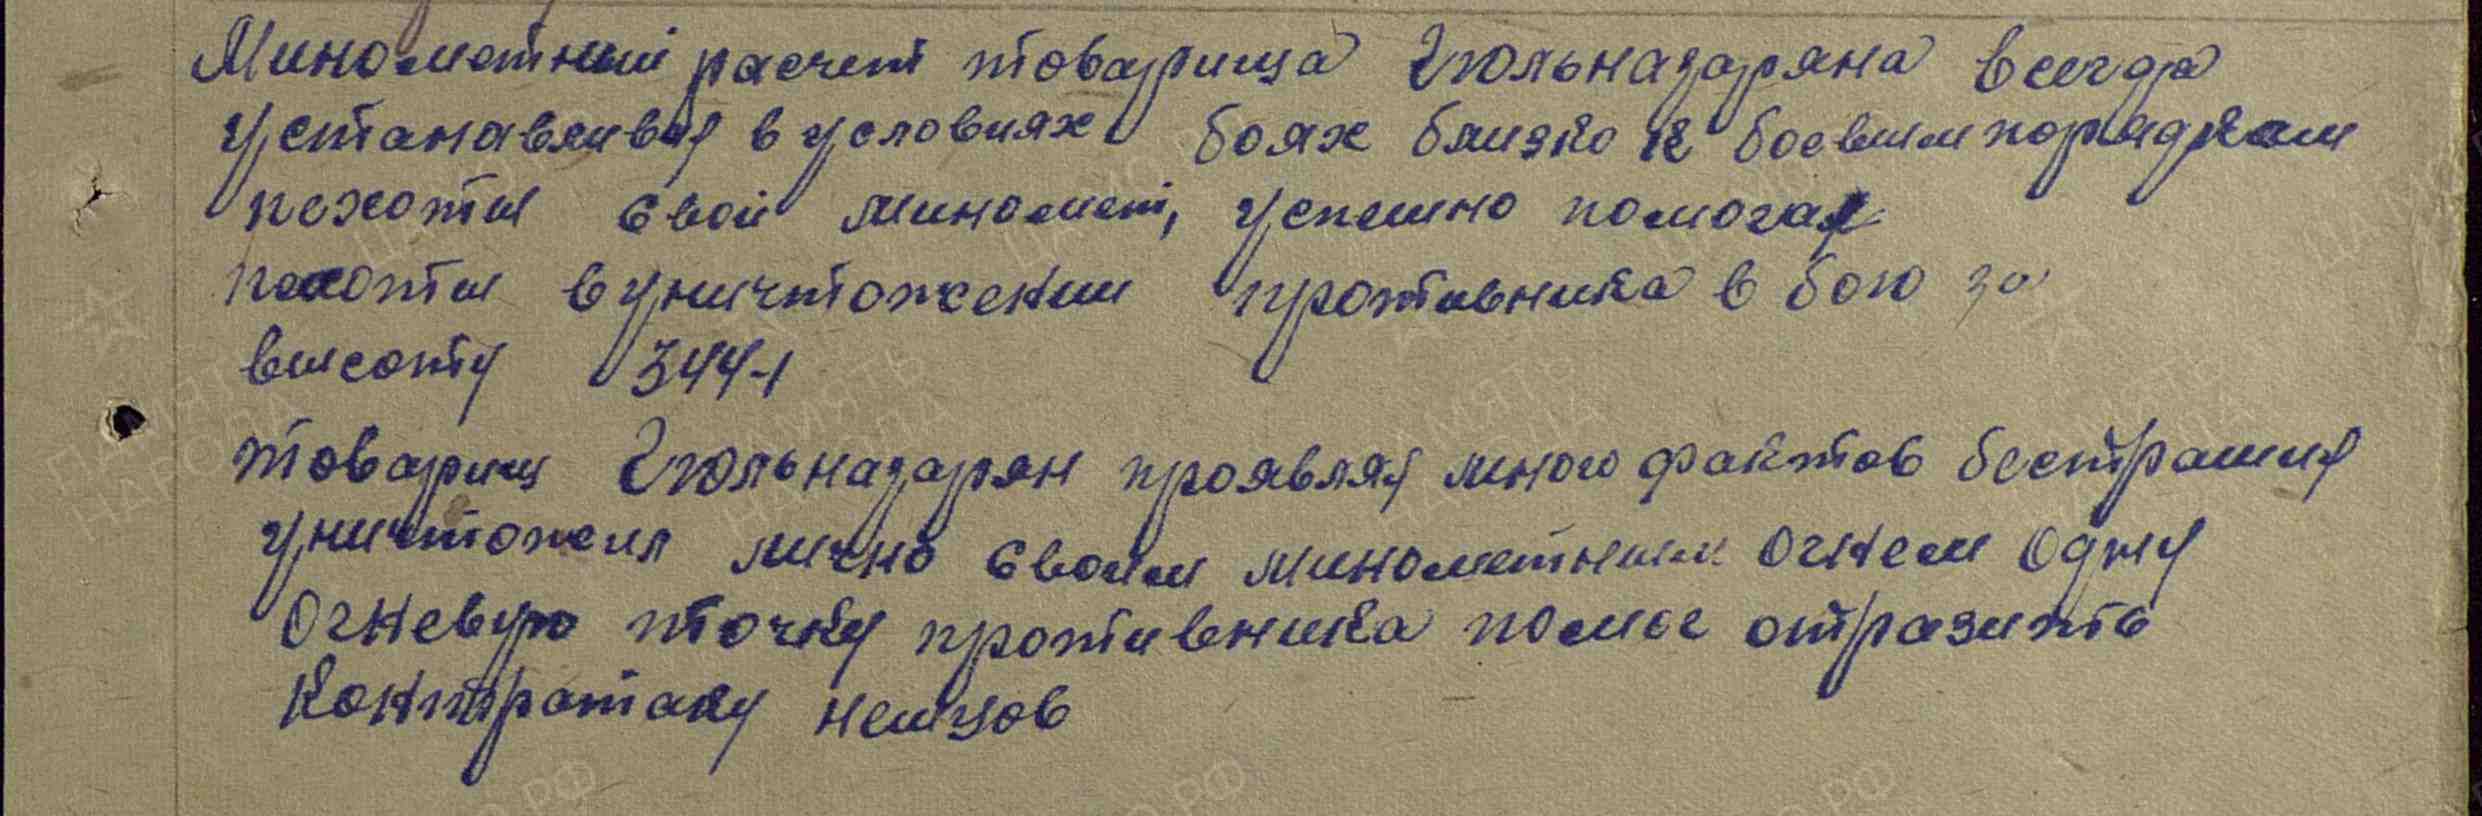 Минометный расчет товарища Гюльназаряна всегда
устанавливая в условиях боях близко к боевым порядкам
пехоты свой миномет, успешно помогая
пехоты в уничтожении противника в бою за
высоту 344-1
товарищ Гюльназарян проявляя много фактов бестрашия
уничтожил лично своим минометным огнем одну
огневую точку противника помог отразить
контратаку немцов